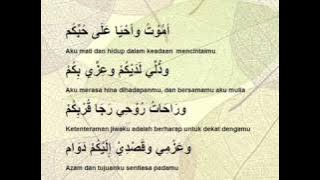 أَمُوْتُ وَأَحْيَا عَلَى حُبِّكُمْ
Aku mati dan hidup dalam keadaan mencintaimu
وَذُلِّي لَدَيْكُمْ وَعِزِّي بِكُمْ
Aku merasa hina dihadapanmu, dan bersamamu aku mulia
وَرَاحَاتُ رُوْحِي رَجَا قُرْبِكُمْ
Ketenteraman jiwaku adalah berharap untuk dekat dengamu
وَعَزْمِي وَقَصْدِيْ إِلَيْكُمْ دَوَام
Azam dan tujuanku sentiasa padamu